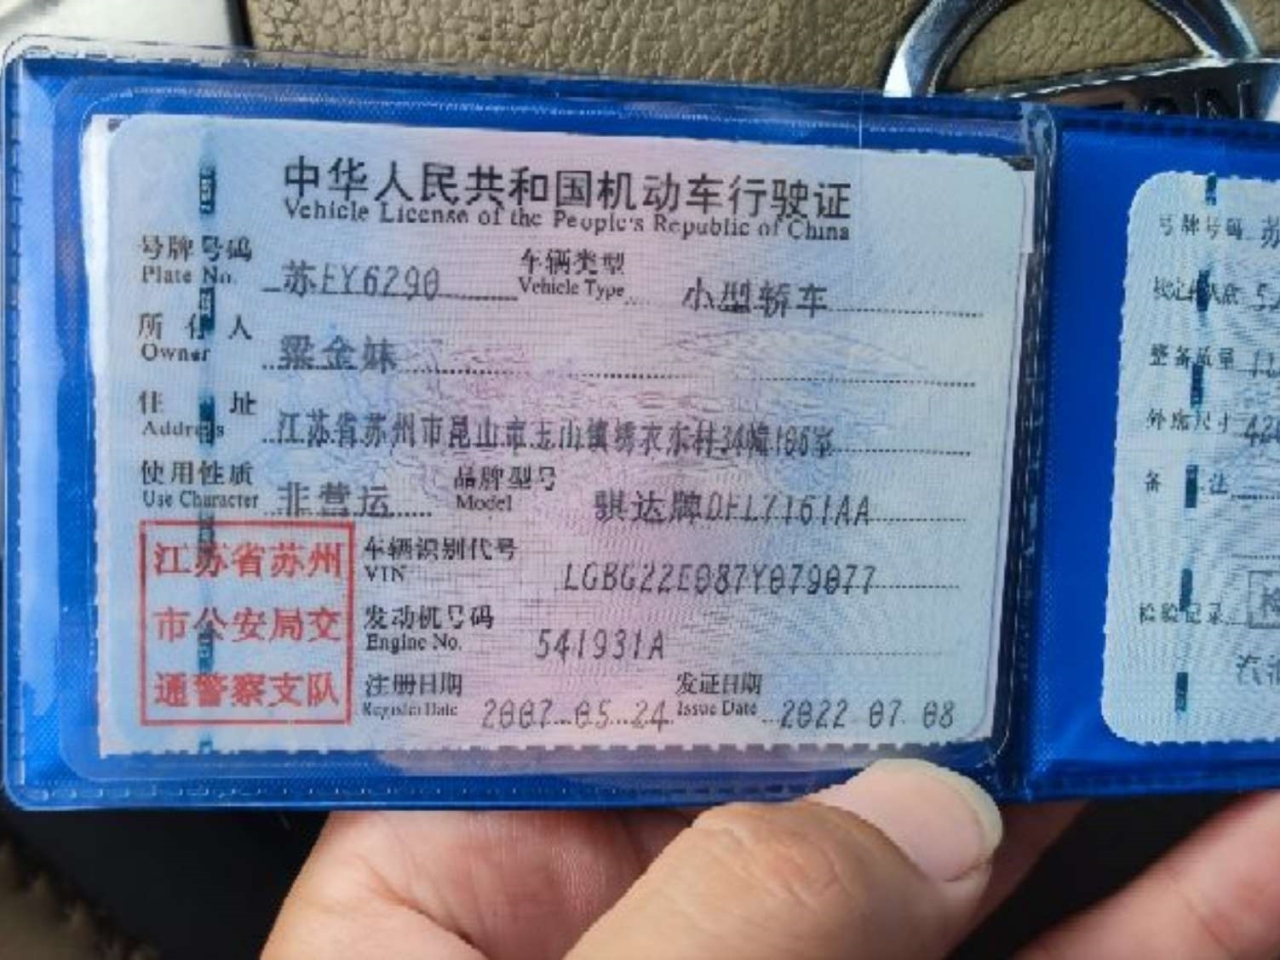 中华人民共和国机动车行驶证
Vehicle License of the People's Republic of China
号牌号码 苏EY6290 车辆类型 小型轿车
Plate No. Vehicle Type
所有人 梁金妹
Owner
住址 江苏省苏州市昆山市玉山镇绣衣东村34幢106室
Address
使用性质 非营运 品牌型号 骐达牌DFL7161AA
Use Character Model
江苏省苏州
市公安局交
通警察支队
车辆识别代号 LGBG22E087Y079077
VIN
发动机号码 541931A
Engine No.
注册日期 2007.05.24 发证日期 2022.07.08
Register Date Issue Date
号牌号码 苏
整备质量
外廓尺寸 42
备 注
检验记录 检